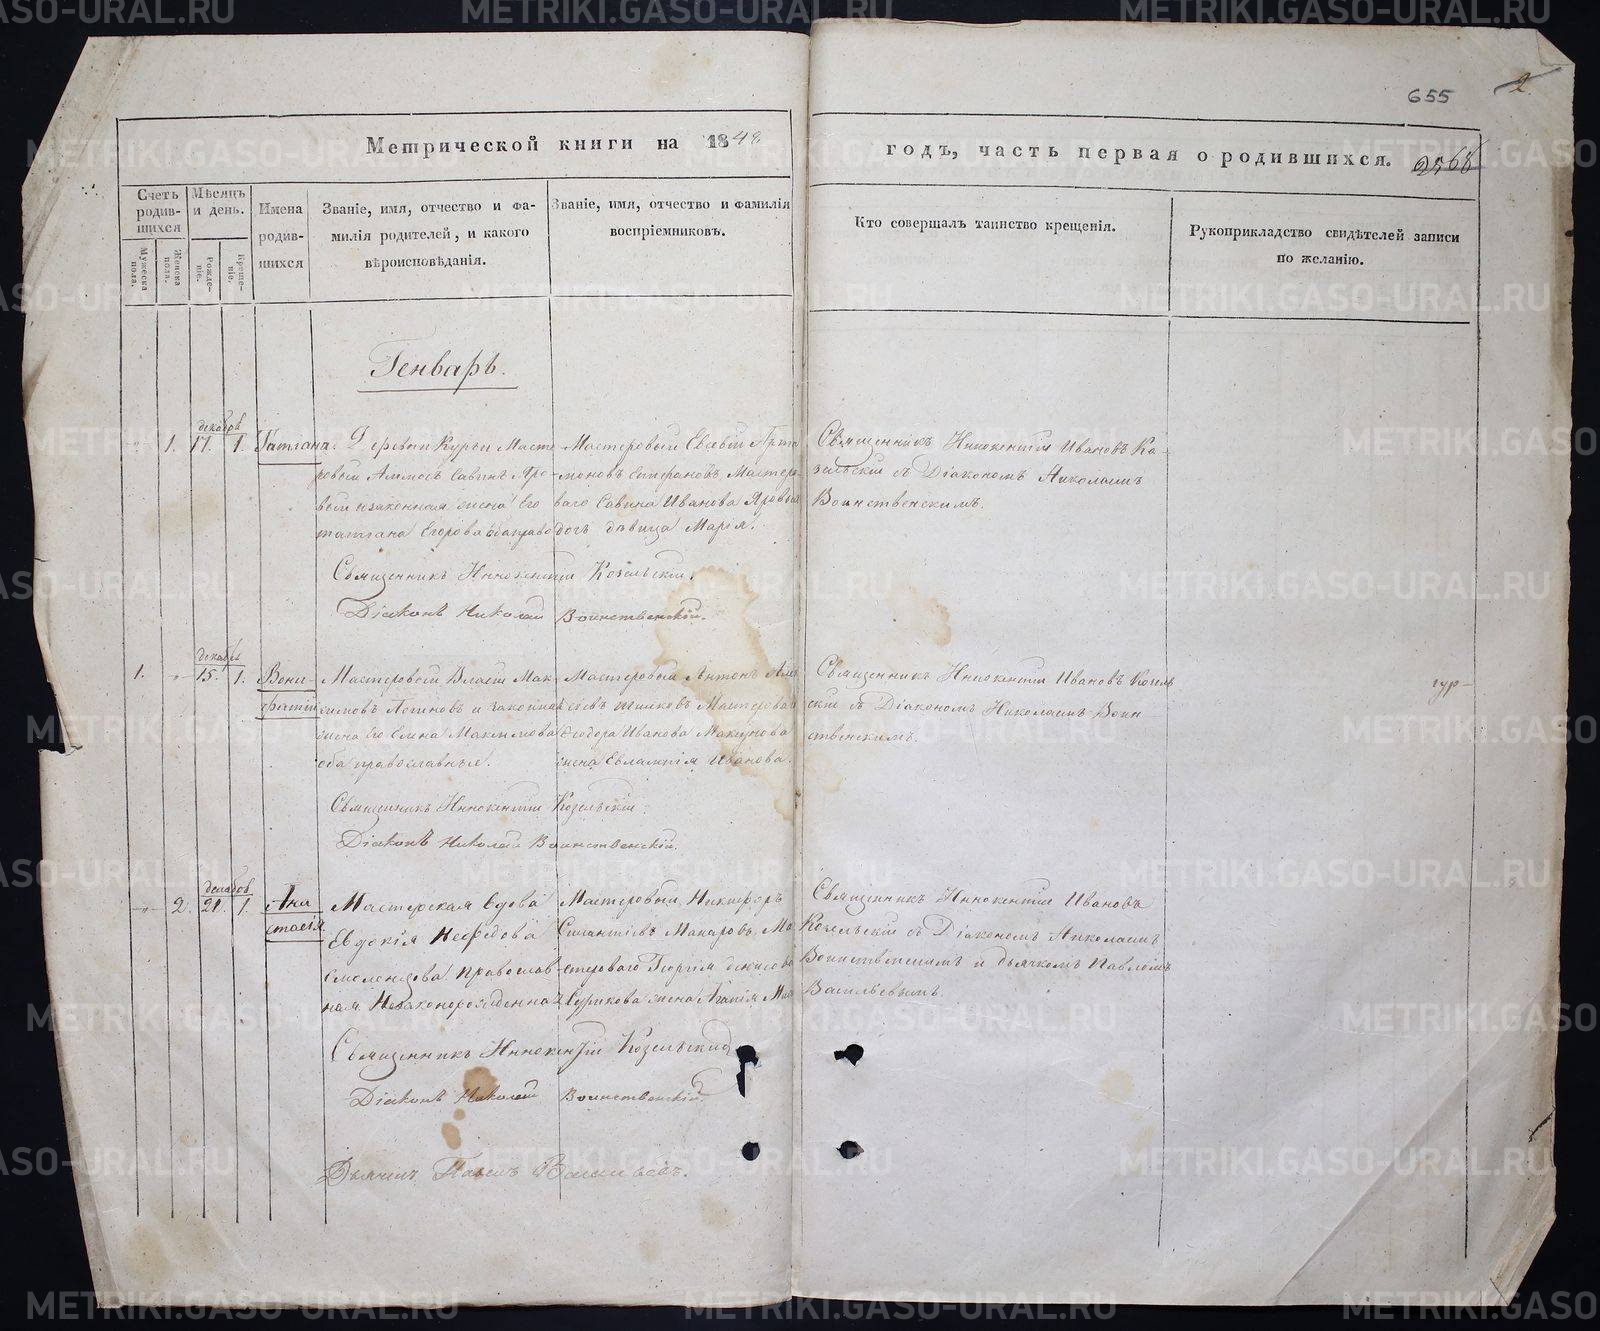 655
2
Метрической книги на 1849.
годъ, часть первая о родившихся. 2568
Счетъ родив-шихся
Мѣсяцъ и день.
Имена родив-шихся
Званіе, имя, отчество и фа-милія родителей, и какого вѣроисповѣданія.
Званіе, имя, отчество и фамилія воспріемниковъ.
Кто совершалъ таинство крещенія.
Рукоприкладство свидѣтелей записи по желанію.
Мужеска пола.
Женска пола.
Рожде-ніе.
Креще-ніе.
Генварь.
декабря
1. 17. 1. Татіана.
Деревни Курьи Масте-
ровой Аммосъ Савинъ Яро-
вый и законная жена его
татіана Егорова оба правос
Мастеровый Евсевій Арта
моновъ Епифановъ, Мастеро-
ваго Савина Иванова Яровыя
дочь дѣвица Марія.
Священникъ Иннокентій Ивановъ Ко-
зельскій съ Діакономъ Николаемъ
Воинственскимъ.
Священникъ Иннокентій Козельскій.
Діаконъ Николай Воинственскій.
декабря
1. 15. 1. Вони-
фатій
Мастеровой Власій Мак-
симовъ Логиновъ и законная
жена его Елена Максимова
оба православные.
Мастеровой Антонъ Але
Мастероваго
Ѳеодора Иванова
жена Евлампія Иванова.
Священникъ Иннокентій Ивановъ Козель
скій съ Діакономъ Николаемъ Воин-
ственскимъ.
Священникъ Иннокентій Козельскій.
Діаконъ Николай Воинственскій.
декабря
2. 21. 1. Ана
стасія
Мастерская вдова
Евдокія Нефедова
Смоленцова православ
ная Незаконорожденная
Мастеровый Никифоръ
Силантіевъ Макаровъ, Ма
стероваго Георгія Денисова
Сурикова жена Агапія
Священникъ Иннокентій Ивановъ
Козельскій съ Діакономъ Николаемъ
Воинственскимъ и дьячкомъ Павломъ
Васильевымъ.
Священникъ Иннокентій Козельскій
Діаконъ Николай Воинственскій.
Дьячекъ Павелъ Васильевъ.
METRIKI.GASO-URAL.RU